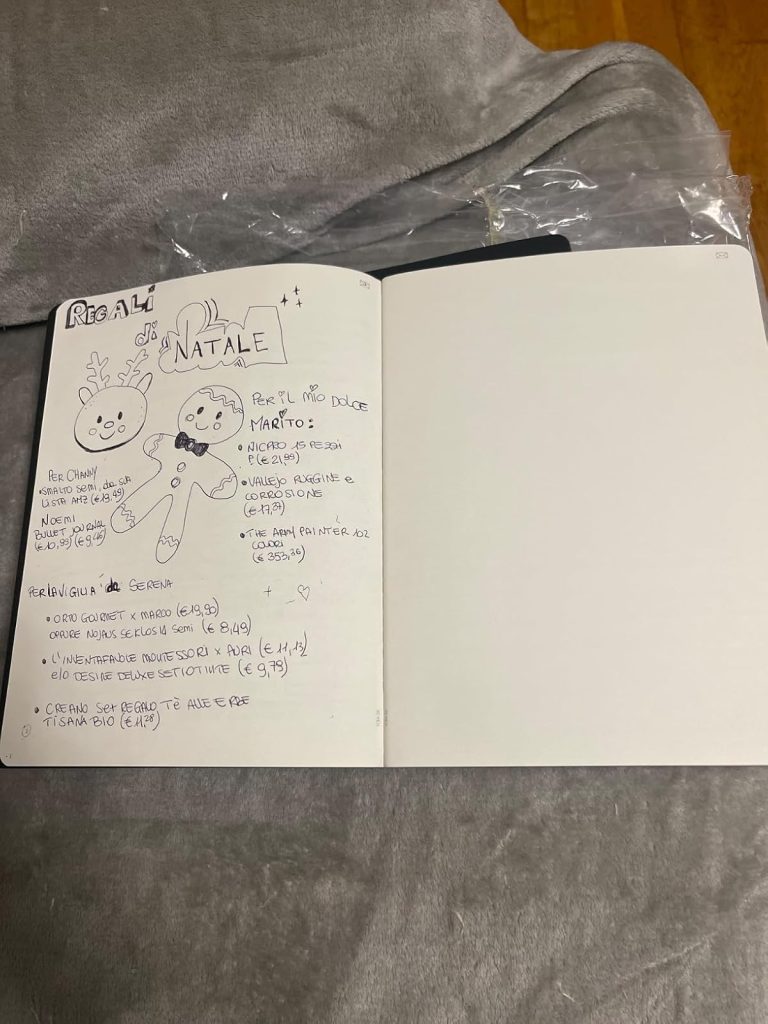 REGALI
di
NATALE
PER IL MIO DOLCE
MARITO:
• NICPRO 15 PEZZI
(€21,99)
• VALLEJO RUGGINE e
CORROSIONE
(€17,37)
• THE ARMY PAINTER 102
COLORI
(€ 353,36)
PER CHANNY
• SMALTO SEMI. da SUA
LISTA AMZ (€19,49)
NOEMI
BULLET JOURNAL
(€10,99) (€9,46)
PER LA VIGILIA da SERENA
+
• ORTO GOURMET x MARCO (€19,90)
OPPURE NOJAUS SEKLOS 14 SEMI (€ 8,49)
• L'INVENTAFAVOLE MONTESSORI x AURI (€ 11,13)
e/o DESIRE DELUXE SET (€ 9,79)
• CREANO Set REGALO TÈ ALLE ERBE
TISANA BIO (€11,28)